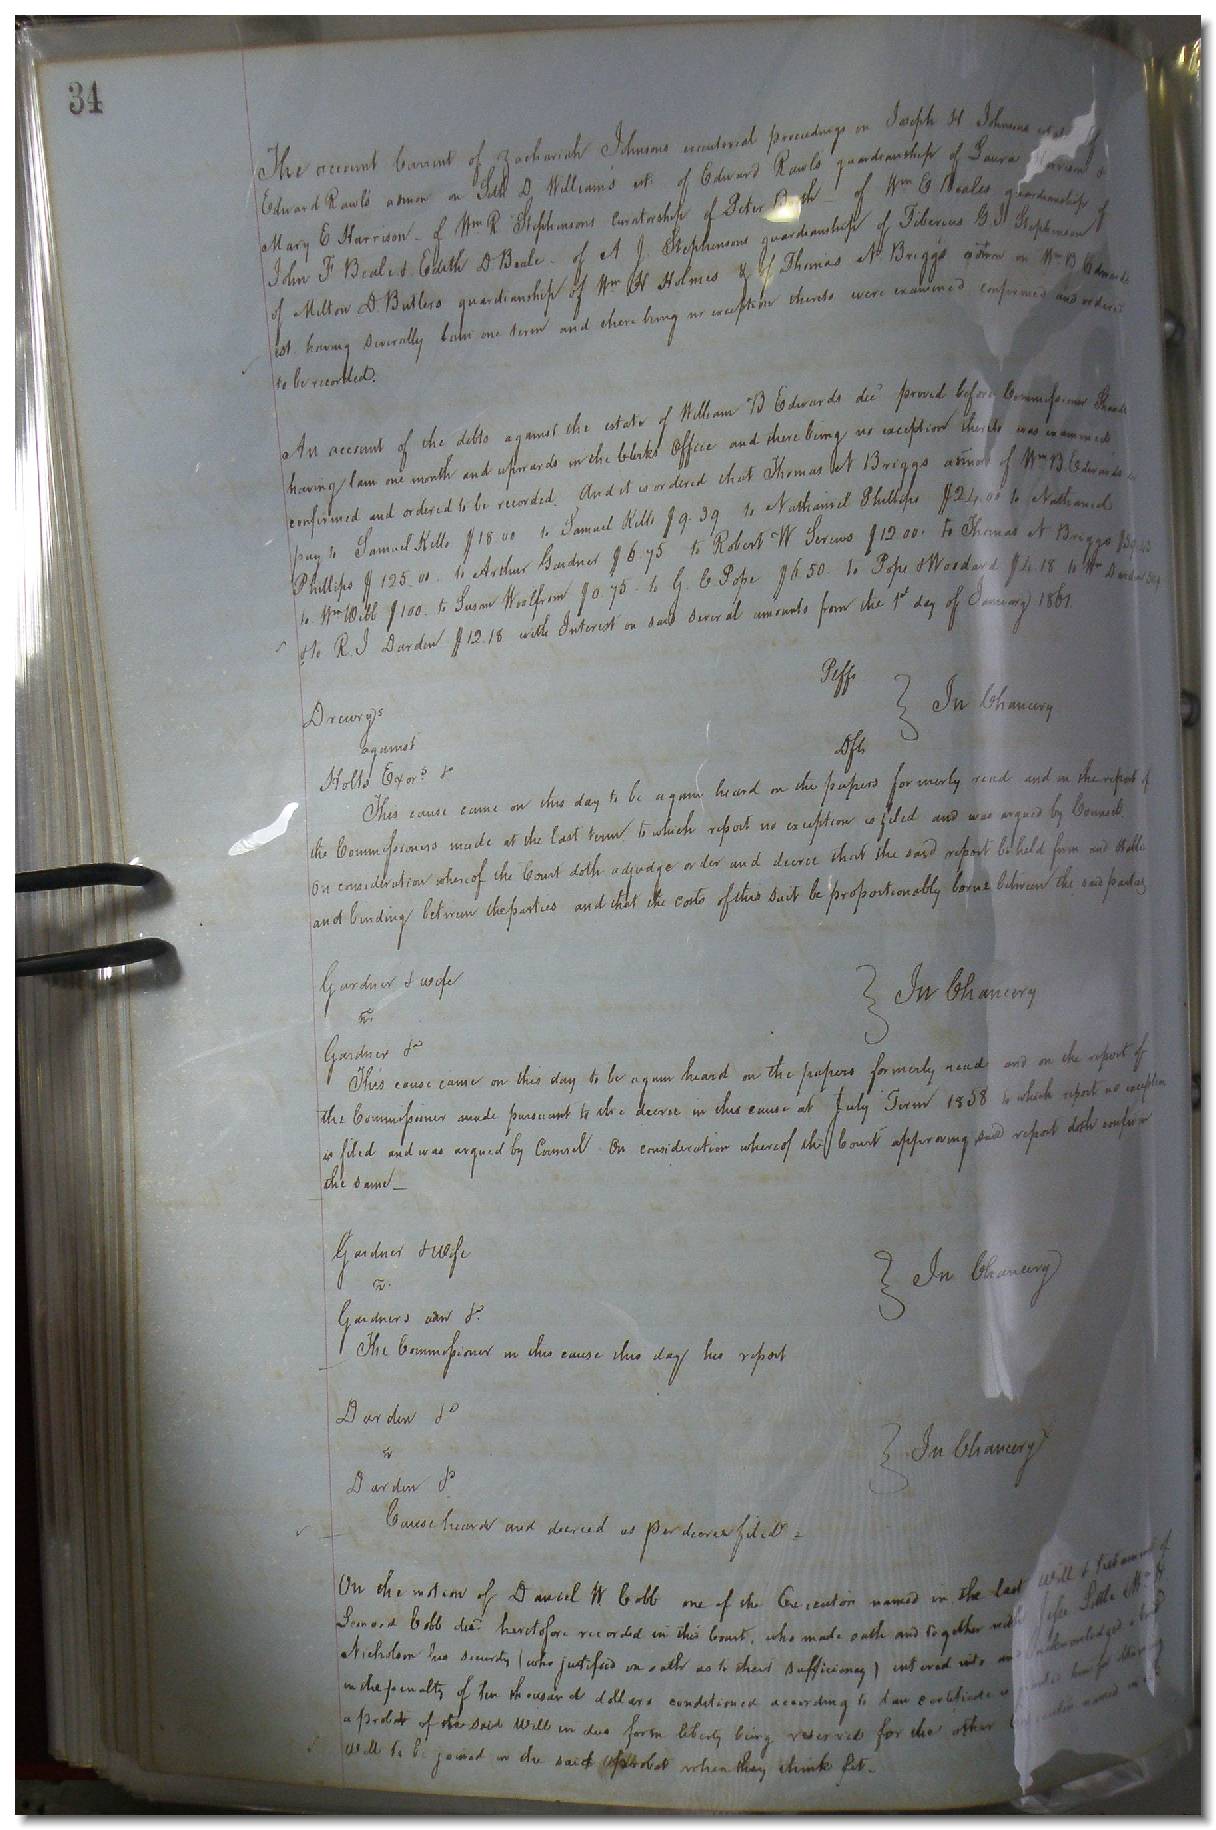 34
The account Current of Zachariah Johnsons executorial proceedings on Joseph H Johnsons estate of
Edward Rawls admor on Seth D Williams est. of Edward Rawls guardianship of Laura Harrison &
Mary E Harrison - of Wm R Stephensons Curatorship of Peter - of Wm E Beales guardianship of
John F Beale & Edith D Beale - of A J. Stephensons guardianship of Tiberius G. Stephenson
of Milton D Butlers guardianship of Wm H Holmes & of Thomas N Briggs admor on Wm B Edwards
est. having severally lain one term and there being no exception thereto were examined confirmed and ordered
to be recorded.
An account of the debts against the estate of William B Edwards decd proved before Commissioner
having lain one month and upwards in the Clerks Office and there being no exception thereto was examined
confirmed and ordered to be recorded. And it is ordered that Thomas N Briggs admor of Wm B. Edwards
pay to Samuel Kello $18.00 to Samuel Kello $9.39 to Nathaniel Phillips $24.00 to Nathaniel
Phillips $125.00. to Arthur Gardner $6.75 to Robert W Screws $12.00. to Thomas N Briggs
to Wm Webb $100. to Susan Woolfrom $0.75. to G. C Pope $6.50. to Pope & Woodard $4.18 to Wm Darden
& to R. J Darden $12.18 with Interest on said several amounts from the 1st day of January 1861.
Drewrys Plffs
against } In Chancery
Holts Exors & Dfts
This cause came on this day to be again heard on the papers formerly read and on the report of
the Commissioners made at the last term to which report no exception is filed and was argued by Counsel.
On consideration whereof the Court doth adjudge order and decree that the said report be held firm and stable
and binding between the parties and that the costs of this suit be proportionably borne between the said parties
Gardner & wife
vs. } In Chancery
Gardner &c
This cause came on this day to be again heard on the papers formerly read and on the report of
the Commissioner made pursuant to the decree in this cause at July Term 1858 to which report no exception
is filed and was argued by Counsel On consideration whereof the Court approving said report doth confirm
the same_
Gardner & wife
vs. } In Chancery
Gardners adm &c.
The Commissioner in this cause this day his report
Darden &c
vs } In Chancery
Darden &c.
Cause heard and decreed as per decree filed -
On the motion of Daniel W Cobb one of the Executors named in the last Will & testament of
Cobb decd heretofore recorded in this Court, who made oath and together with Jesse Little Wm H
Nicholson his security (who justified on oath as to their sufficiency) entered into and acknowledged a bond
in the penalty of ten thousand dollars conditioned according to law certificate is granted him for obtaining
a probat of the said Will in due form liberty being reserved for the other Executor named in
Will to be joined in the said probat when they think fit.